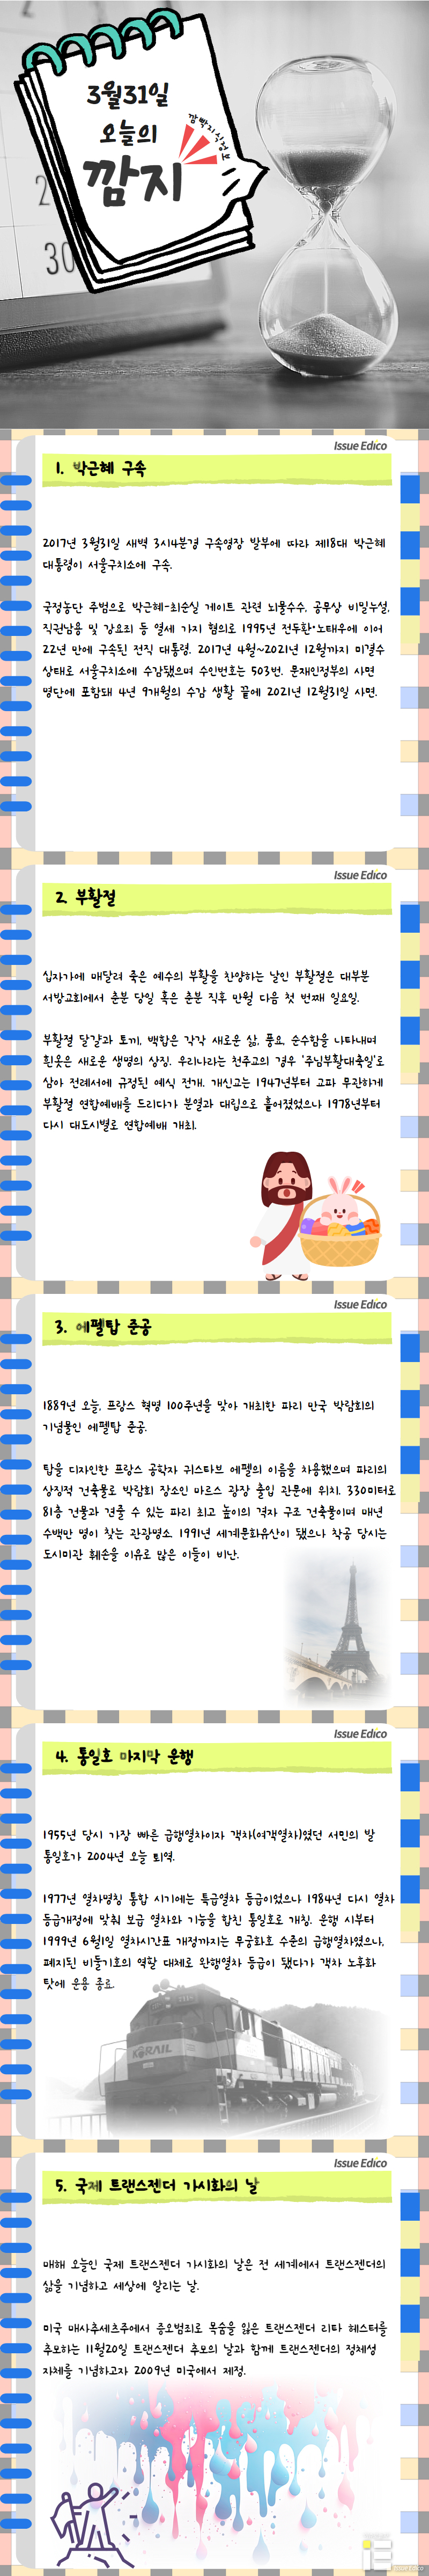 3월31일
오늘의
깜빡지식정보
깜지
2
30
Issue Edico
1. 박근혜 구속
2017년 3월31일 새벽 3시4분경 구속영장 발부에 따라 제18대 박근혜
대통령이 서울구치소에 구속.
국정농단 주범으로 박근혜-최순실 게이트 관련 뇌물수수, 공무상 비밀누설,
직권남용 및 강요죄 등 열세 가지 혐의로 1995년 전두환·노태우에 이어
22년 만에 구속된 전직 대통령. 2017년 4월~2021년 12월까지 미결수
상태로 서울구치소에 수감됐으며 수인번호는 503번. 문재인정부의 사면
명단에 포함돼 4년 9개월의 수감 생활 끝에 2021년 12월31일 사면.
Issue Edico
2. 부활절
십자가에 매달려 죽은 예수의 부활을 찬양하는 날인 부활절은 대부분
서방교회에서 춘분 당일 혹은 춘분 직후 만월 다음 첫 번째 일요일.
부활절 달걀과 토끼, 백합은 각각 새로운 삶, 풍요, 순수함을 나타내며
흰옷은 새로운 생명의 상징. 우리나라는 천주교의 경우 '주님부활대축일'로
삼아 전례서에 규정된 예식 전개. 개신교는 1947년부터 교파 무관하게
부활절 연합예배를 드리다가 분열과 대립으로 흩어졌었으나 1978년부터
다시 대도시별로 연합예배 개최.
Issue Edico
3. 에펠탑 준공
1889년 오늘, 프랑스 혁명 100주년을 맞아 개최한 파리 만국 박람회의
기념물인 에펠탑 준공.
탑을 디자인한 프랑스 공학자 귀스타브 에펠의 이름을 차용했으며 파리의
상징적 건축물로 박람회 장소인 마르스 광장 출입 관문에 위치. 330미터로
81층 건물과 견줄 수 있는 파리 최고 높이의 격자 구조 건축물이며 매년
수백만 명이 찾는 관광명소. 1991년 세계문화유산이 됐으나 착공 당시는
도시미관 훼손을 이유로 많은 이들이 비난.
Issue Edico
4. 통일호 마지막 운행
1955년 당시 가장 빠른 급행열차이자 객차(여객열차)였던 서민의 발
통일호가 2004년 오늘 퇴역.
1977년 열차명칭 통합 시기에는 특급열차 등급이었으나 1984년 다시 열차
등급개정에 맞춰 보급 열차와 기능을 합친 통일호로 개칭. 운행 시부터
1999년 6월1일 열차시간표 개정까지는 무궁화호 수준의 급행열차였으나,
폐지된 비둘기호의 역할 대체로 완행열차 등급이 됐다가 객차 노후화
탓에 운용 종료.
KORAIL
Issue Edico
5. 국제 트랜스젠더 가시화의 날
매해 오늘인 국제 트랜스젠더 가시화의 날은 전 세계에서 트랜스젠더의
삶을 기념하고 세상에 알리는 날.
미국 매사추세츠주에서 증오범죄로 목숨을 잃은 트랜스젠더 리타 헤스터를
추모하는 11월20일 트랜스젠더 추모의 날과 함께 트랜스젠더의 정체성
자체를 기념하고자 2009년 미국에서 제정.
iE
Issue Edico